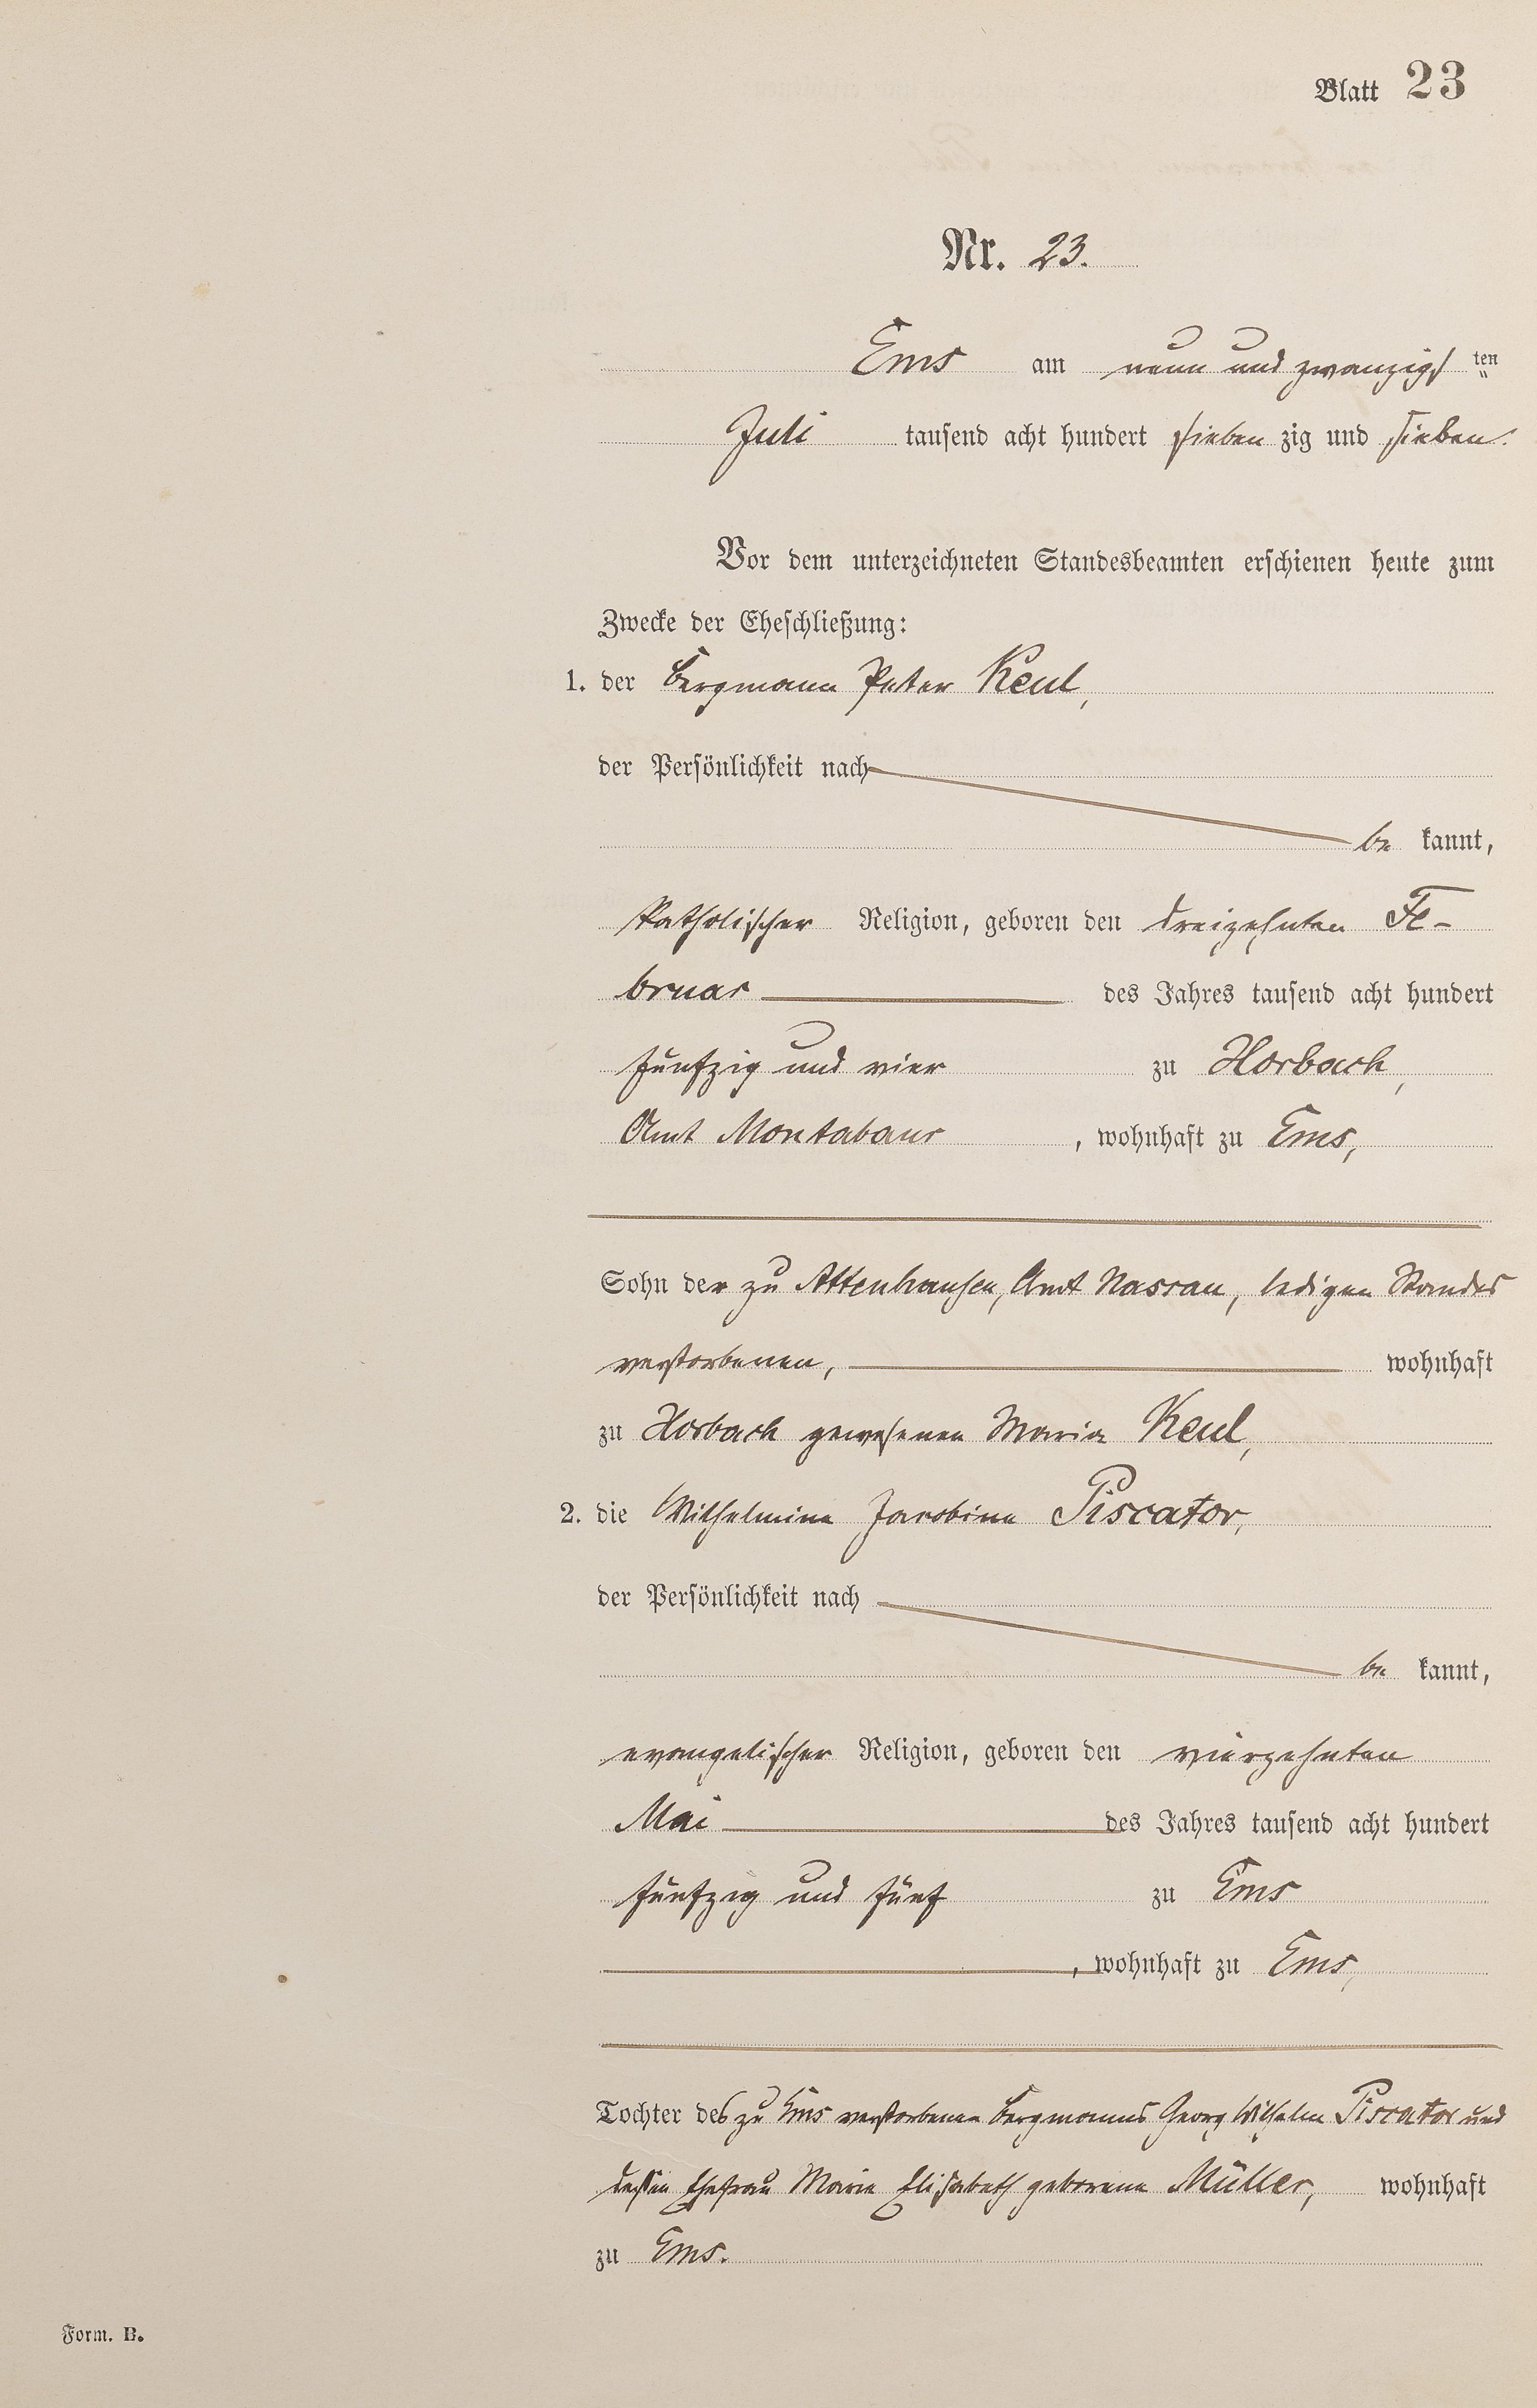 Blatt 23
Nr. 23.
Ems am neun und zwanzigsten
Juli tausend acht hundert sieben zig und sieben.
Vor dem unterzeichneten Standesbeamten erschienen heute zum
Zwecke der Eheschließung:
1. der Bergmann Peter Keul,
der Persönlichkeit nach
be kannt,
katholischer Religion, geboren den dreizehnten Fe-
bruar des Jahres tausend acht hundert
fünfzig und vier zu Horbach,
Amt Montabaur, wohnhaft zu Ems,
Sohn der zu Attenhausen, Amt Nassau, ledigen Standes
verstorbenen, wohnhaft
zu Horbach gewesenen Maria Keul,
2. die Wilhelmine Jacobine Piscator,
der Persönlichkeit nach
be kannt,
evangelischer Religion, geboren den vierzehnten
Mai des Jahres tausend acht hundert
fünfzig und fünf zu Ems
, wohnhaft zu Ems,
Tochter des zu Ems verstorbenen Bergmanns Georg Wilhelm Piscator und
dessen Ehefrau Marie Elisabeth geborene Müller, wohnhaft
zu Ems.
Form. B.